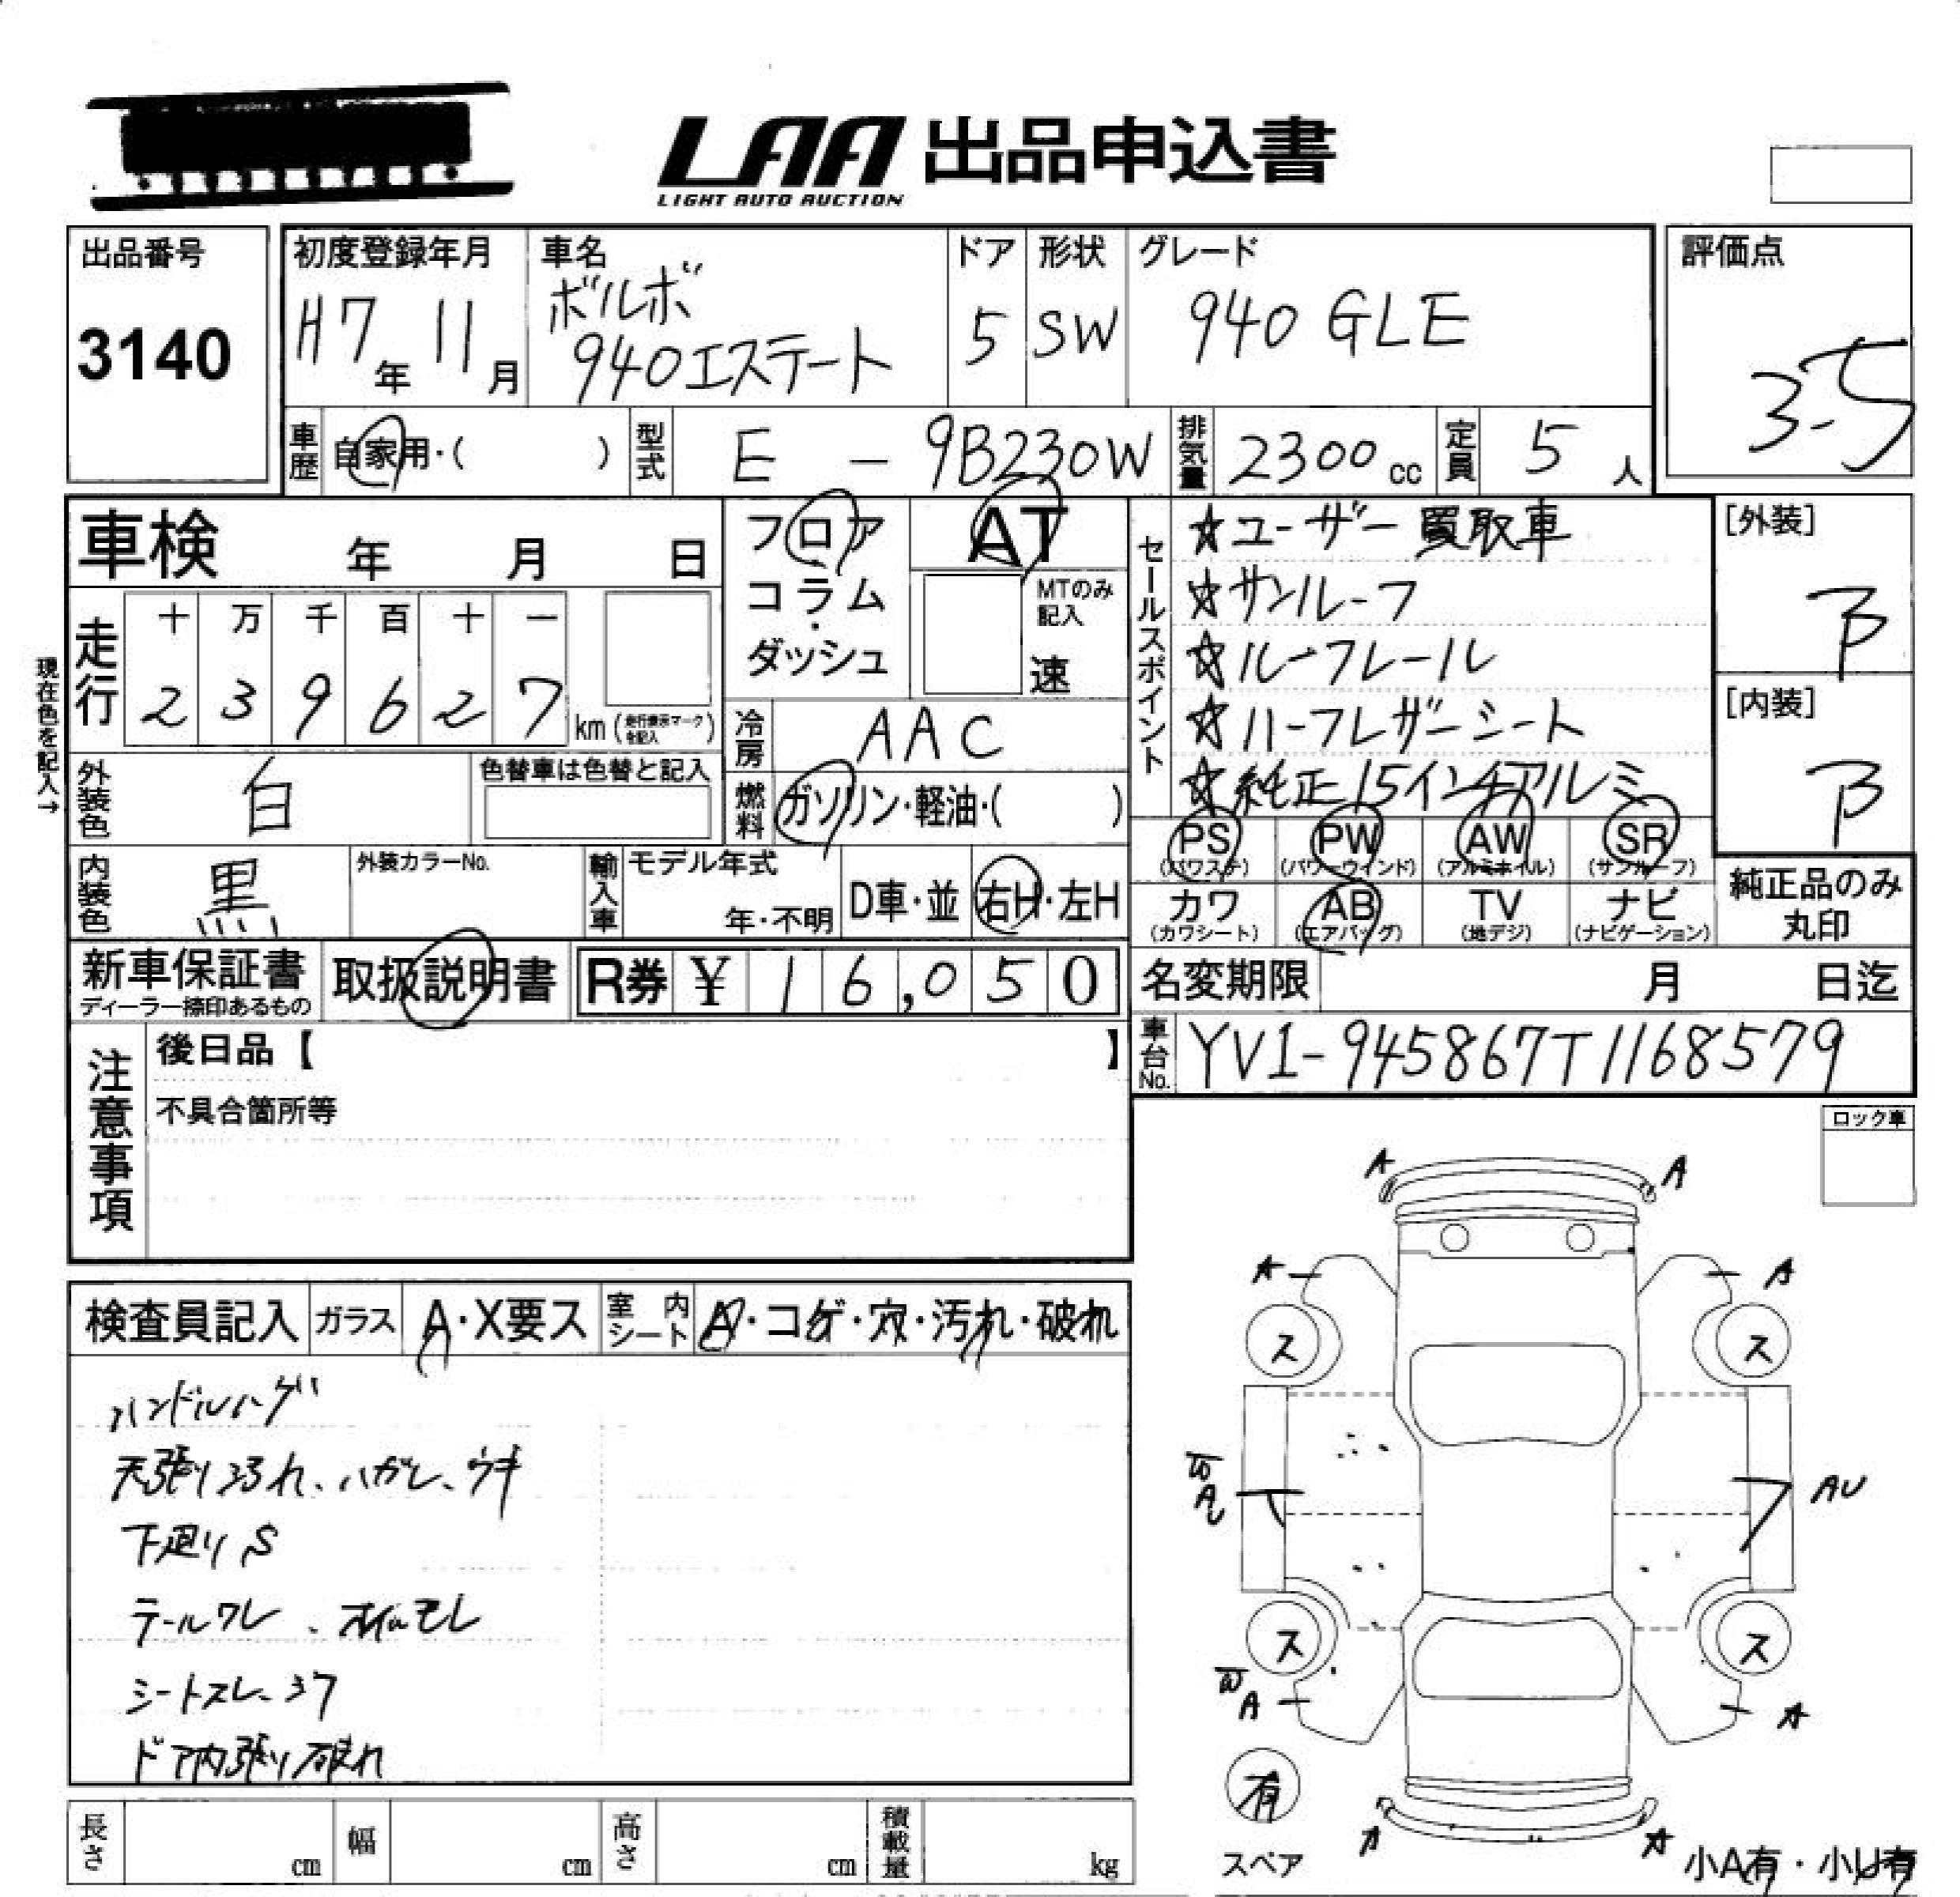 LAA 出品申込書
LIGHT AUTO AUCTION
出品番号
3140
初度登録年月
H7年 11月
車名
ボルボ
940エステート
ドア
5
形状
SW
グレード
940 GLE
評価点
3.5
車歴 自家用・( )
型式 E - 9B230W
排気量 2300cc
定員 5人
車検 年 月 日
現在色を記入→
走行
十 万 千 百 十 一
2 3 9 6 2 7 km (走行表示マークを記入)
フロア
コラム・
ダッシュ
AT
MTのみ記入
速
冷房 AAC
燃料 ガソリン・軽油・( )
セールスポイント
☆ユーザー買取車
☆サンルーフ
☆ルーフレール
☆ハーフレザーシート
☆純正15インチアルミ
[外装]
B
[内装]
B
外装色 白
色替車は色替と記入
内装色 黒
外装カラーNo.
輸入車
モデル年式
年・不明
D車・並
右H・左H
PS (パワステ)
PW (パワーウインド)
AW (アルミホイル)
SR (サンルーフ)
カワ (カワシート)
AB (エアバッグ)
TV (地デジ)
ナビ (ナビゲーション)
純正品のみ
丸印
新車保証書
ディーラー捺印あるもの
取扱説明書
R券 ¥ 16,050
名変期限 月 日迄
車台No. YV1-945867T1168579
注意事項
後日品【 】
不具合箇所等
ロック車
検査員記入
ガラス A・X要ス
室内シート A・コゲ・穴・汚れ・破れ
ハンドルハゲ
天張り汚れ、ハガレ、ウキ
下廻りS
テールワレ、オイルモレ
シートスレ、シワ
ドア内張り破れ
A A
A A
ス ス
A AU
ス ス
A A
有
スペア
A A
小A有・小U有
長さ cm
幅 cm
高さ cm
積載量 kg